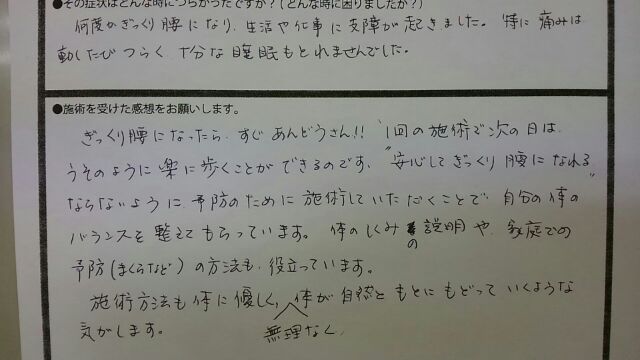 ●その症状はどんな時につらかったですか？(どんな時に困りましたか？)
何度かぎっくり腰になり、生活や仕事に支障が起きました。特に痛みは
動くたびつらく、十分な睡眠もとれませんでした。
●施術を受けた感想をお願いします。
ぎっくり腰になったら、すぐあんどうさん!! 1回の施術で次の日は
うそのように楽に歩くことができるのです、"安心してぎっくり腰になれる"
ならないように、予防のために施術していただくことで、自分の体の
バランスを整えてもらっています。体のしくみの説明や、家庭での
予防(まくらなど)の方法も、役立っています。
施術方法も体に優しく、無理なく、体が自然ともとにもどっていくような
気がします。